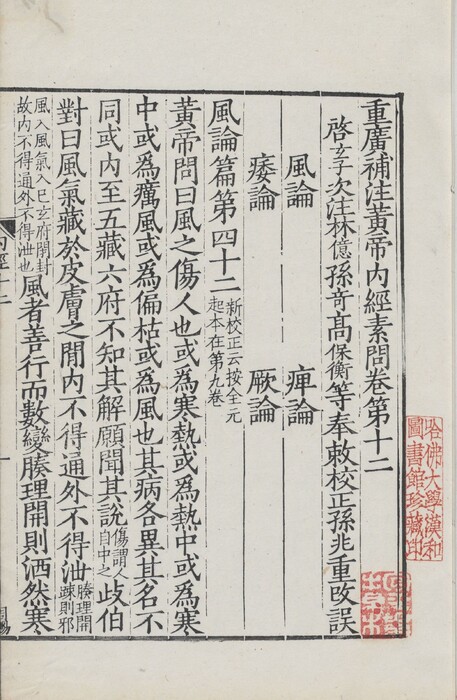 重廣補注黃帝內經素問卷第十二
啓玄子次注林億孫竒高保衡等奉敕校正孫兆重改誤
風論
痹論
痿論
厥論
風論篇第四十二新校正云按全元起本在第九卷
黃帝問曰風之傷人也或為寒熱或為熱中或為寒
中或為癘風或為偏枯或為風也其病各異其名不
同或內至五藏六府不知其解願聞其說傷謂人自中之歧伯
對曰風氣藏於皮膚之閒內不得通外不得泄腠理開踈則邪
風入風氣入已玄府閉封故內不得通外不得泄也風者善行而數變腠理開則洒然寒
內經十二
哈佛大學漢和圖書館珍藏印